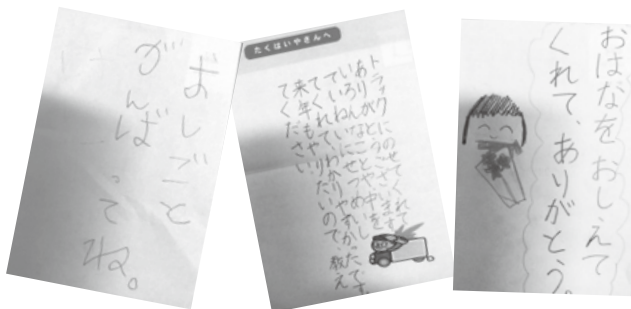 おしごと
がんばってね。
たくはいやさんへ
トラックにのせてくれて
ありがとうございます
いろんなことや中を
ていねいにせつめいし
てくれて、わかりやすかったです。
来年もやりたいので、教え
てください
おはなを おしえて
くれて、ありがとう。